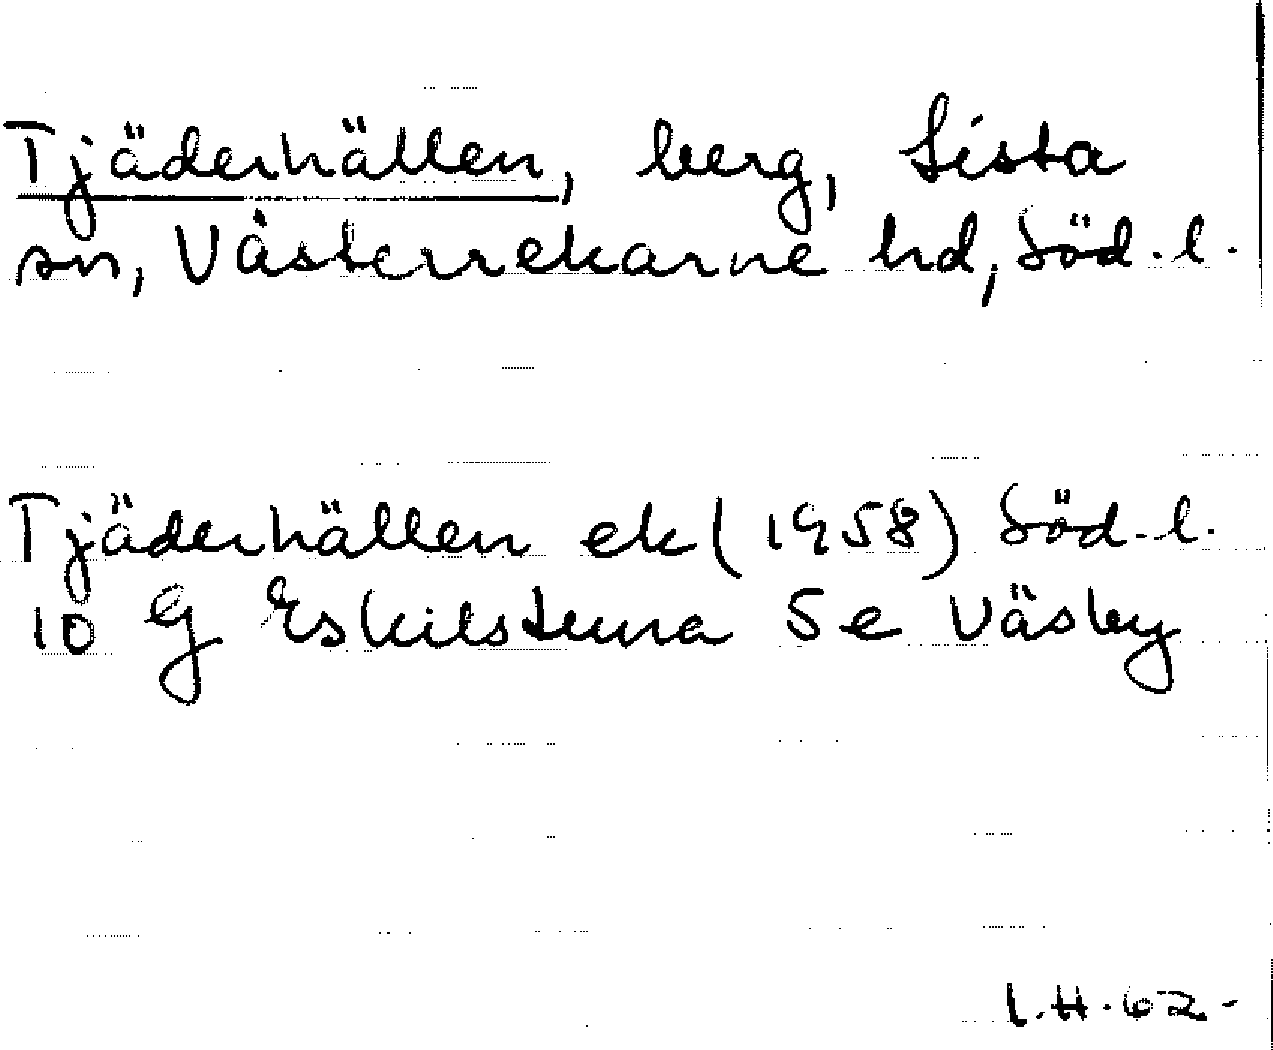 Tjäderhällen, berg, Lista
sn, Västerrekarne hd, Söd.l.
Tjäderhällen ek (1958) Söd.l.
10 G Eskilstuna 5 e Väsby
I.H.62.-